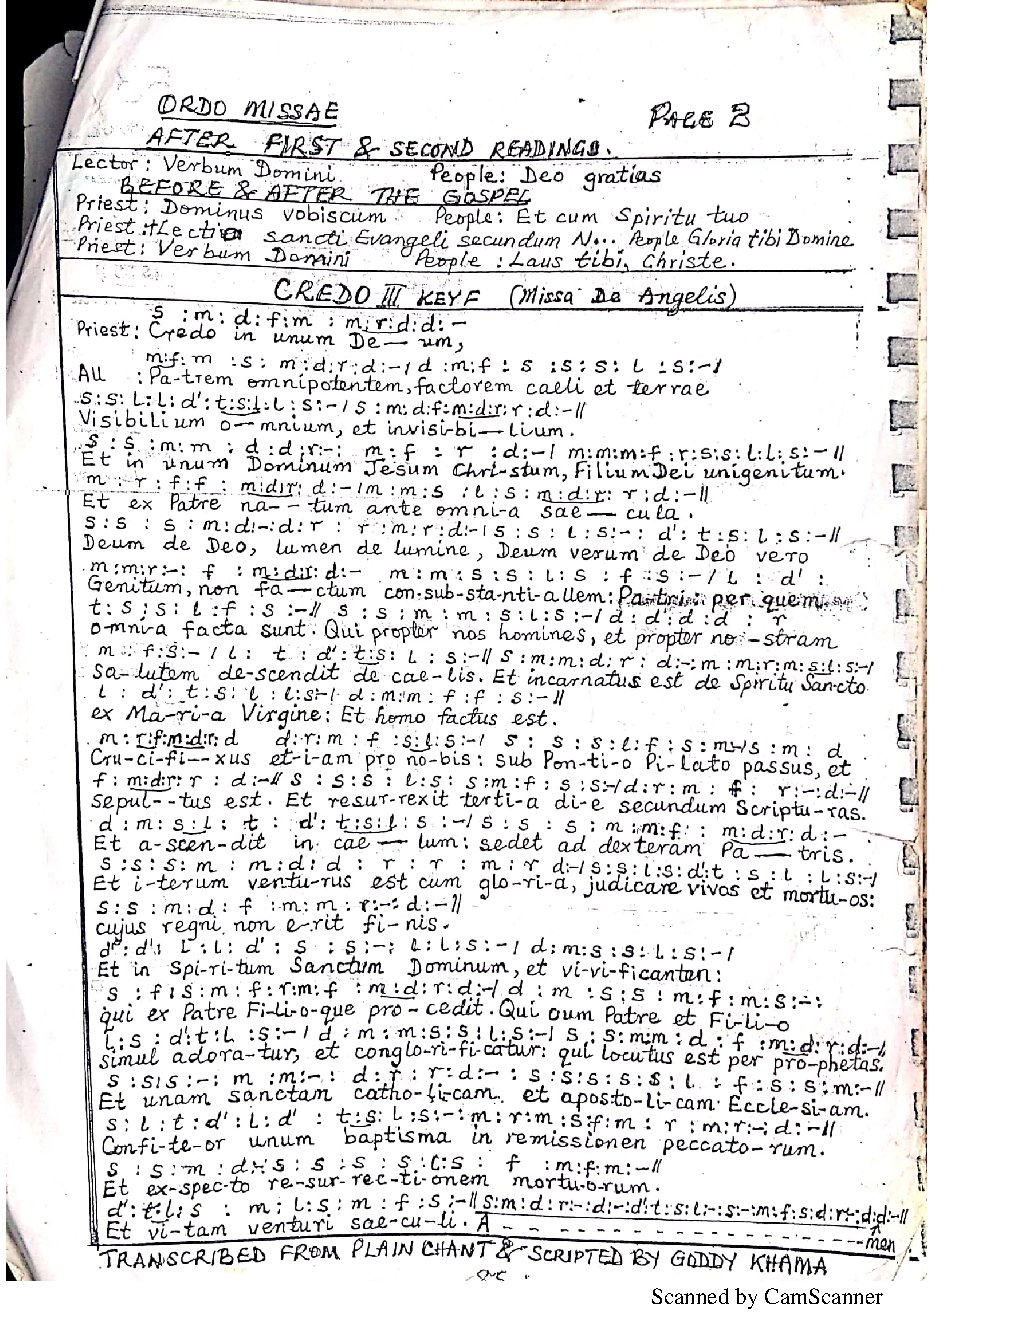 ORDO MISSAE PAGE 3
AFTER FIRST & SECOND READINGS.
Lector: Verbum Domini. People: Deo gratias
BEFORE & AFTER THE GOSPEL
Priest: Dominus vobiscum People: Et cum Spiritu tuo
Priest: Lectio sancti Evangeli secundum N... People Gloria tibi Domine
Priest: Verbum Domini People: Laus tibi, Christe.
CREDO III KEY F (Missa De Angelis)
s : m : d : f : m : m : r : d : d : -
Priest: Credo in unum De—um,
m:f:m :s: m:d:r:d:-/ d :m:f : s :s:s: l :s:-/
All : Pa-trem omnipotentem, factorem caeli et terrae
s:s: l:l: d': t:s:l:l:s:-/ s:m:d:f:m:d:r:r:d:-//
Visibilium o—mnium, et invisi-bi—lium.
s : s :m:m : d :d:r:-: m:f : r :d:-/ m:m:m:f :r:s:s:l:l:s:-//
Et in unum Dominum Jesum Chri-stum, Filium Dei unigenitum.
m : r : f:f : m:d:r: d:-/m:m:s :l:s:m:d:r: r:d:-//
Et ex Patre na--tum ante omni-a sae—cula.
s:s : s :m:d:-:d:r : r :m:r:d:-/s:s:l:s:-: d':t:s:l:s:-//
Deum de Deo, lumen de lumine, Deum verum de Deo vero
m:m:r:-: f :m:d:r:d:- m:m:s:s:l:s :f:s:-/l : d' :
Genitum, non fa—ctum con-sub-stan-ti-allem: Pa-tri: per quem
t:s:s:l:f:s:-// s:s:m:m:s:l:s:-/d:d:d:d : r
o-mni-a facta sunt. Qui propter nos homines, et propter no-stram
m : f:s:-/l: t :d':t:s: l : s:-// s:m:m:d:r:d:-:m:m:r:m:s:l:s:-/
Sa-lutem de-scendit de cae-lis. Et incarnatus est de Spiritu Sancto
l : d':t:s:l:l:s:-/ d:m:m:f:f:s:-//
ex Ma-ri-a Virgine: Et homo factus est.
m : r:f:m:d:r:d d:r:m:f:s:l:s:-/ s: s:s:l:f:s:m:-/s:m:d
Cru-ci-fi--xus et-i-am pro no-bis: sub Pon-ti-o Pi-lato passus, et
f:m:d:r: r : d:-// s:s:s:l:s: s:m:f:s:s:-/d:r:m:f: r:-:d:-//
sepul--tus est. Et resur-rexit terti-a di-e secundum Scriptu-ras.
d:m:s:l: t : d':t:s:l:s:-/s:s:s:m:m:f: m:d:r:d:-
Et a-scen-dit in cae—lum: sedet ad dexteram Pa—tris.
s:s:s:m:m:d:d:r:r:m:r d:-/s:s:l:s:d':t:s:l:l:s:-/
Et i-terum ventu-rus est cum glo-ri-a, judicare vivos et mortu-os:
s:s:m:d:f:m:m:r:-:d:-//
cujus regni non e-rit fi-nis.
d':d': l:l: d':s:s:-: l:l:s:-/ d:m:s:s:l:s:-/
Et in Spi-ri-tum Sanctum Dominum, et vi-vi-ficanten:
s :f:s:m:f:r:m:f :m:d:r:d:-/ d:m:s:s:m:f:m:s:-:
qui ex Patre Fi-li-o-que pro-cedit. Qui oum Patre et Fi-li-o
l:s:d':t:l:s:-/ d:m:m:s:s:l:s:-/ s:s:m:m:d:f:m:d:r:d:-//
simul adora-tur, et conglo-ri-fi-catur: qui locutus est per pro-phetas.
s:s:s:-: m:m:-: d:r:r:d:-: s:s:s:s:s:l:f:s:s:m:-//
Et unam sanctam catho-li-cam. et aposto-li-cam Eccle-si-am.
s:l:t:d':l:d' : t:s:l:s:-:m:r:m:s:f:m:r:m:r:-:d:-//
Confi-te-or unum baptisma in remissionen peccato-rum.
s:s:m:d:s:s:s:s:l:s: f :m:f:m:-//
Et ex-spec-to re-sur-rec-ti-onem mortu-o-rum.
d':t:l:s : m:l:s:m:f:s:-//s:m:d:r:-:d:-:d':t:s:l:-:s:-:m:f:s:d:r:-:d:d:-//
Et vi-tam venturi sae-cu-li. A - - - - - - - - - - - - men
TRANSCRIBED FROM PLAIN CHANT & SCRIPTED BY GODDY KHAMA
Scanned by CamScanner